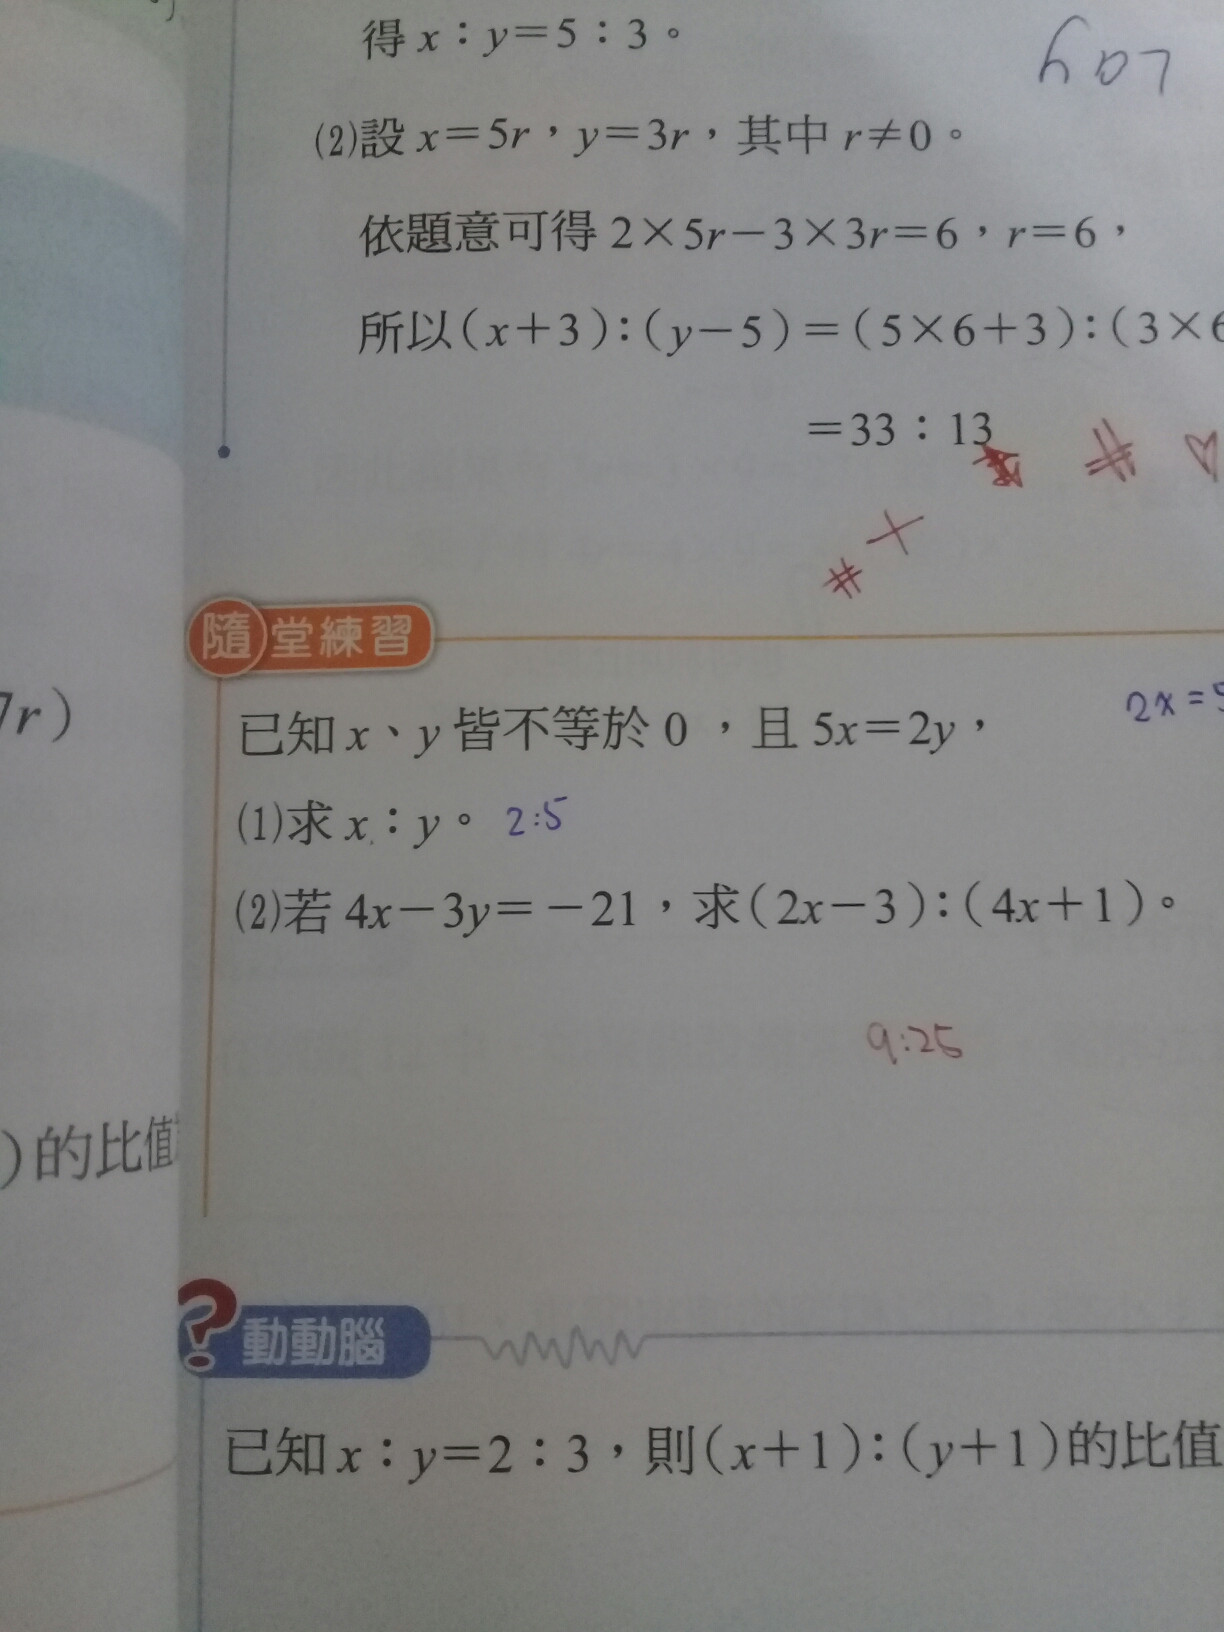 得 x：y＝5：3。
(2)設 x＝5r，y＝3r，其中 r≠0。
依題意可得 2×5r－3×3r＝6，r＝6，
所以(x＋3)：(y－5)＝(5×6＋3)：(3×6
＝33：13
隨堂練習
7r)
已知 x、y 皆不等於 0 ，且 5x＝2y，
2x=5
(1)求 x：y。 2:5
(2)若 4x－3y＝－21，求(2x－3)：(4x＋1)。
9:25
)的比值
動動腦
已知 x：y＝2：3，則(x＋1)：(y＋1)的比值